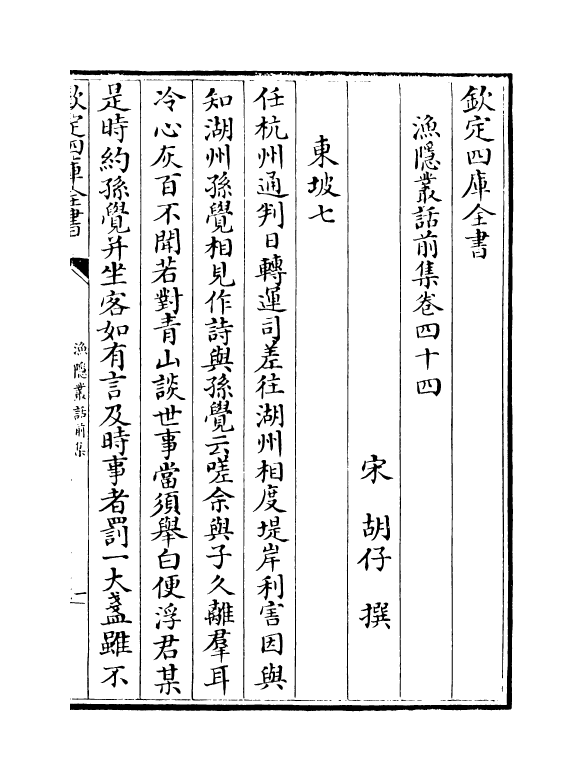 欽定四庫全書
漁隱叢話前集卷四十四
宋 胡仔 撰
東坡七
任杭州通判日轉運司差往湖州相度堤岸利害因與
知湖州孫覺相見作詩與孫覺云嗟余與子久離羣耳
冷心灰百不聞若對青山談世事當須舉白便浮君某
是時約孫覺并坐客如有言及時事者罰一大盞雖不
欽定四庫全書
漁隱叢話前集
一